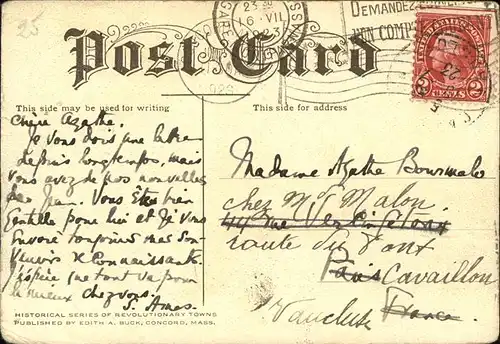 25
23
16 · VII
GARE
DEMANDEZ
UN COMP
Post Card
2 CENTS 2
This side may be used for writing
This side for address
Chère Agathe.
Je vous dois une lettre
depuis longtemps, mais
vous avez de nos nouvelles
par Jean. Vous êtes bien
gentille pour lui et je vous
envoie toujours mes sou-
venirs
J'espère que tout va pour
le mieux chez vous.
S. Amos.
Madame Agathe
chez Mr Malon.
44 rue
route du
Paris Cavaillon
Vaucluse France
HISTORICAL SERIES OF REVOLUTIONARY TOWNS
PUBLISHED BY EDITH A. BUCK, CONCORD, MASS.